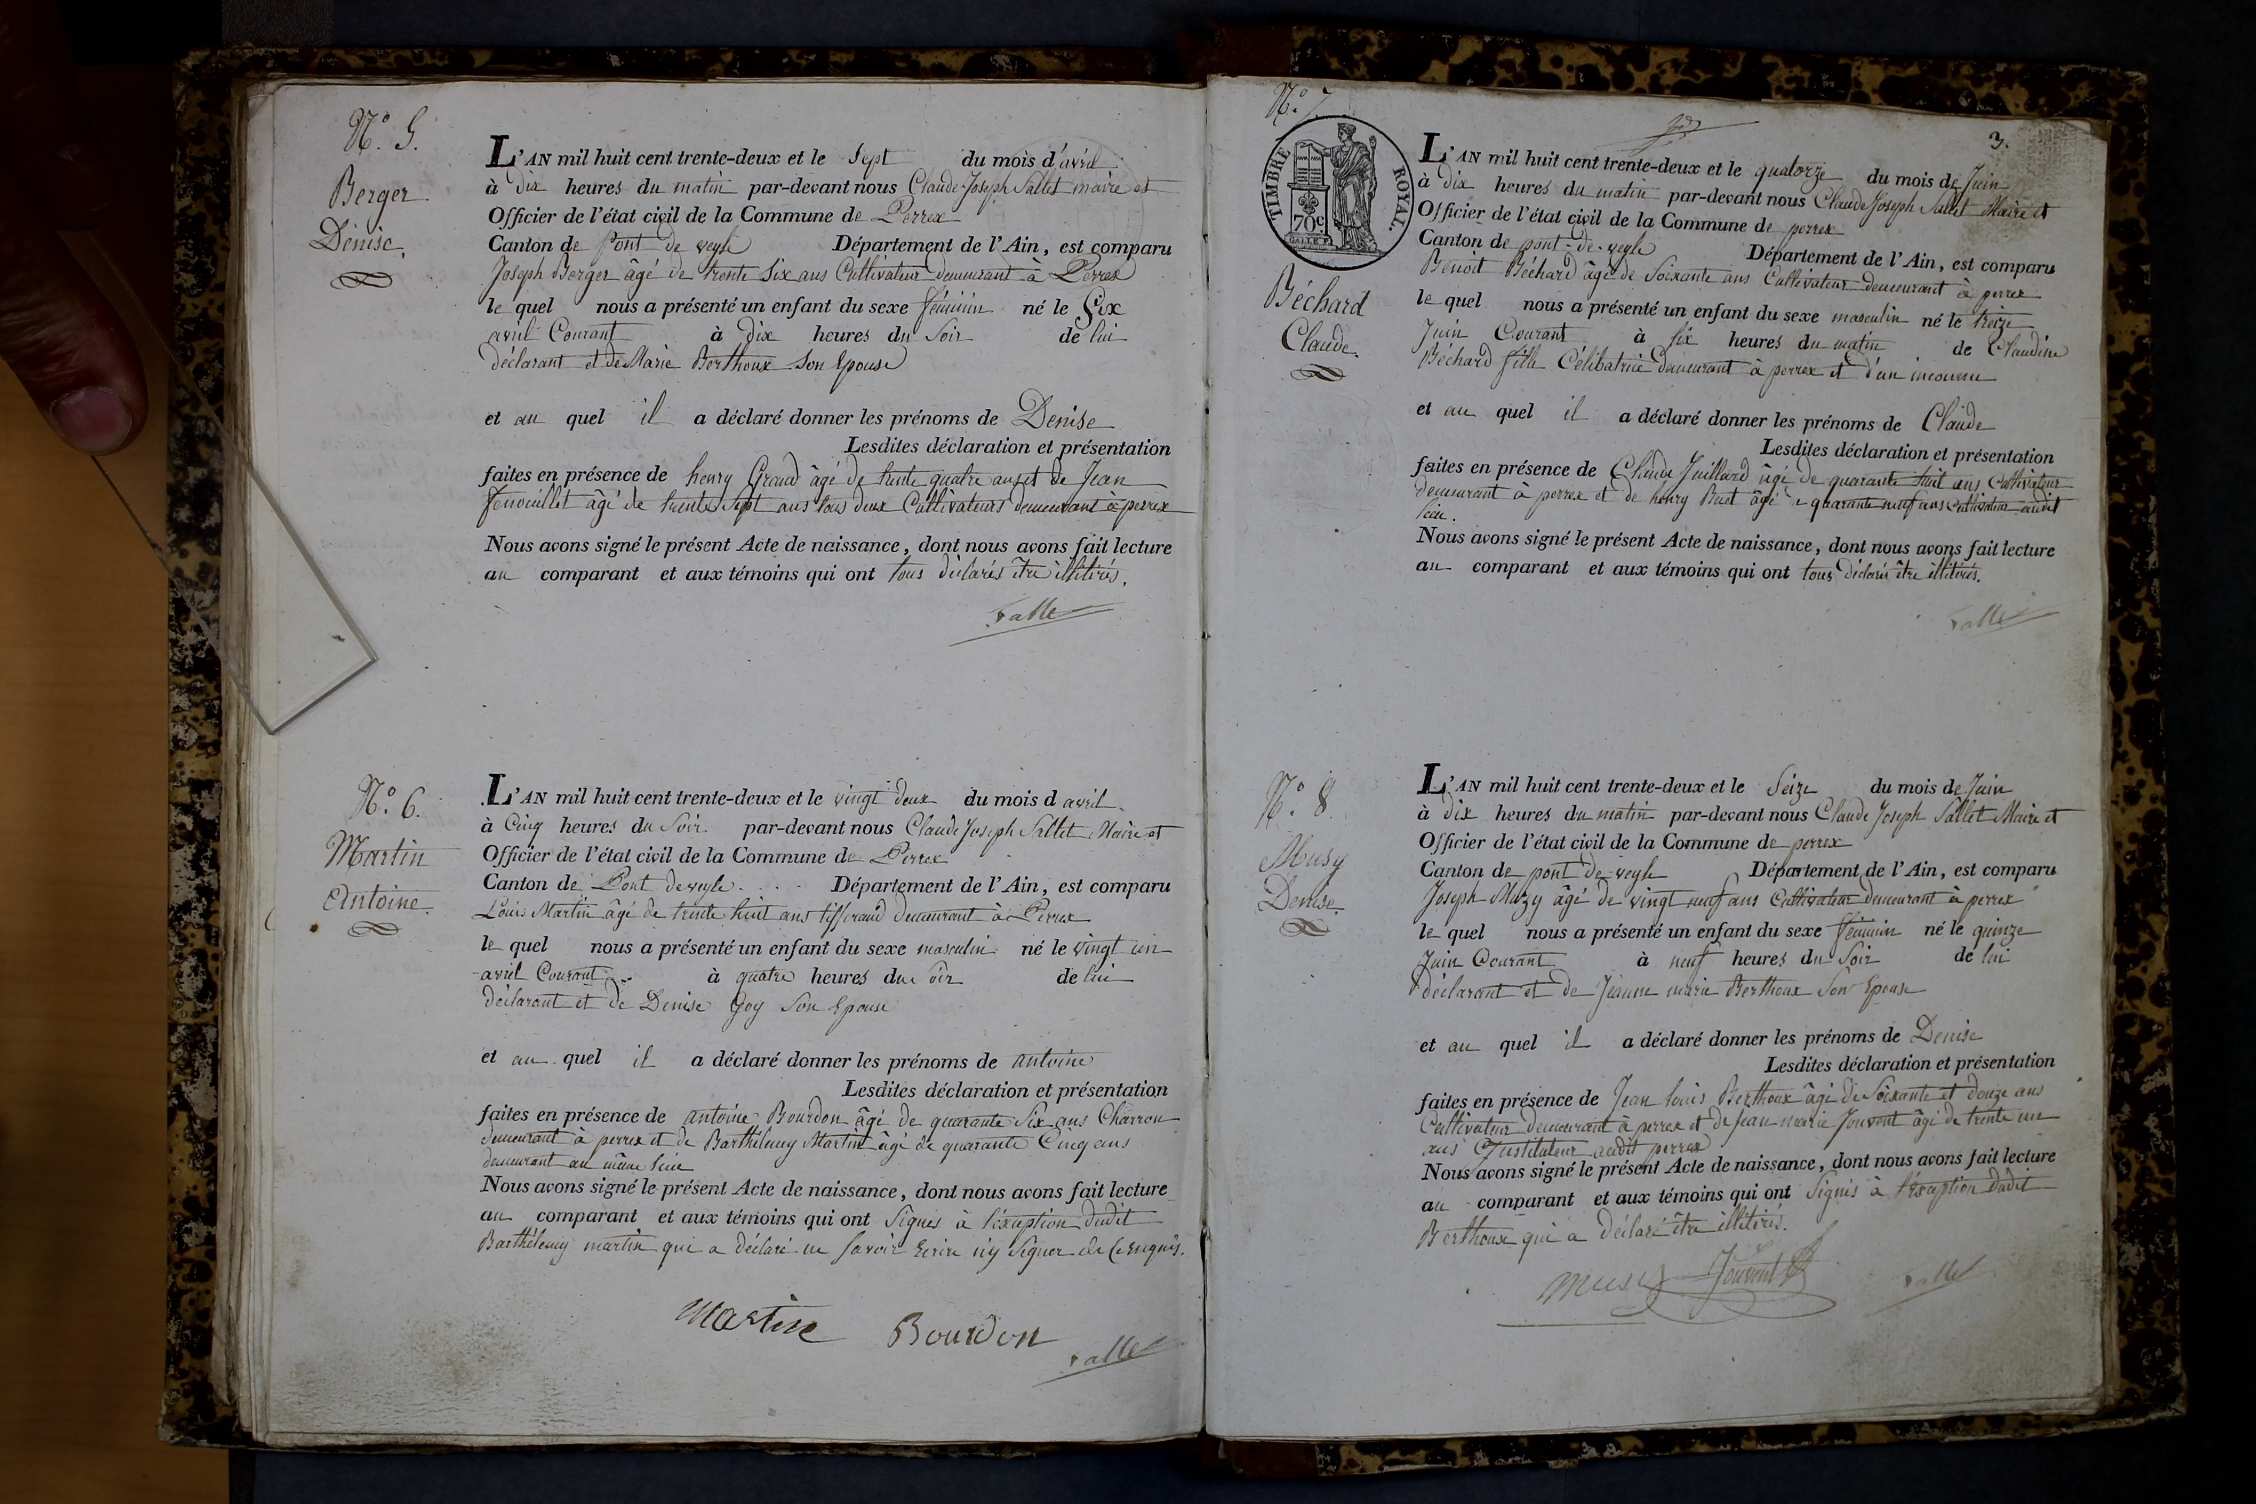 N.º 5.
Berger
Denise.
L'AN mil huit cent trente-deux et le Sept du mois d'avril
à dix heures du matin par-devant nous Claude Joseph Sallet maire et
Officier de l'état civil de la Commune de Perrex
Canton de Pont de veyle Département de l'Ain, est comparu
Joseph Berger âgé de trente six ans Cultivateur demeurant à Perrex
le quel nous a présenté un enfant du sexe féminin né le Six
avril Courant à dix heures du Soir de lui
déclarant et de Marie Berthoux Son Epouse
et au quel il a déclaré donner les prénoms de Denise
Lesdites déclaration et présentation
faites en présence de henry Grand âgé de trente quatre ans et de Jean
fenouillet âgé de trente Sept ans tous deux Cultivateurs demeurant à perrex
Nous avons signé le présent Acte de naissance, dont nous avons fait lecture
au comparant et aux témoins qui ont tous déclarés être illitirés.
Sallet
N.º 6.
Martin
Antoine.
L'AN mil huit cent trente-deux et le vingt deux du mois d avril
à Cinq heures du Soir par-devant nous Claude Joseph Sallet Maire et
Officier de l'état civil de la Commune de Perrex
Canton de Pont de veyle Département de l'Ain, est comparu
Louis Martin âgé de trente huit ans tisserand demeurant à Perrex
le quel nous a présenté un enfant du sexe masculin né le vingt un
avril Courant à quatre heures du soir de lui
déclarant et de Denise Goy Son Epouse
et au quel il a déclaré donner les prénoms de antoine
Lesdites déclaration et présentation
faites en présence de antoine Bourdon âgé de quarante Six ans Charron
demeurant à perrex et de Barthélemy Martin âgé de quarante Cinq ans
demeurant au même lieu
Nous avons signé le présent Acte de naissance, dont nous avons fait lecture
au comparant et aux témoins qui ont Signés à l'éxception dudit
Barthélemy martin qui a déclaré ne Savoir Ecrire n'y Signer de ce Enquis.
Martin Bourdon Sallet
N.º 7.
3.
TIMBRE ROYAL.
70c
Béchard
Claude.
L'AN mil huit cent trente-deux et le quatorze du mois de Juin
à dix heures du matin par-devant nous Claude Joseph Sallet Maire et
Officier de l'état civil de la Commune de perrex
Canton de pont-de-veyle Département de l'Ain, est comparu
Benoit Béchard âgé de Soixante ans Cultivateur demeurant à perrex
le quel nous a présenté un enfant du sexe masculin né le treize
Juin Courant à six heures du matin de Claudine
Béchard fille Célibatrice demeurant à perrex et d'un inconnu
et au quel il a déclaré donner les prénoms de Claude
Lesdites déclaration et présentation
faites en présence de Claude Juillard âgé de quarante huit ans Cultivateur
demeurant à perrex et de henry Buet âgé de quarante neuf ans Cultivateur audit
lieu.
Nous avons signé le présent Acte de naissance, dont nous avons fait lecture
au comparant et aux témoins qui ont tous déclarés être illitirés.
Sallet
N.º 8.
Musy
Denise.
L'AN mil huit cent trente-deux et le Seize du mois de Juin
à dix heures du matin par-devant nous Claude Joseph Sallet Maire et
Officier de l'état civil de la Commune de perrex
Canton de pont de veyle Département de l'Ain, est comparu
Joseph Muzy âgé de vingt neuf ans Cultivateur demeurant à perrex
le quel nous a présenté un enfant du sexe féminin né le quinze
Juin Courant à neuf heures du Soir de lui
déclarant et de Jeanne marie Berthoux Son Epouse
et au quel il a déclaré donner les prénoms de Denise
Lesdites déclaration et présentation
faites en présence de Jean louis Berthoux âgé de Soixante et douze ans
Cultivateur demeurant à perrex et de Jean marie Jouvent âgé de trente un
ans Instituteur audit perrex
Nous avons signé le présent Acte de naissance, dont nous avons fait lecture
au comparant et aux témoins qui ont Signés à l'éxception dudit
Berthoux qui a déclaré être illitiré.
musy Jouvent Sallet